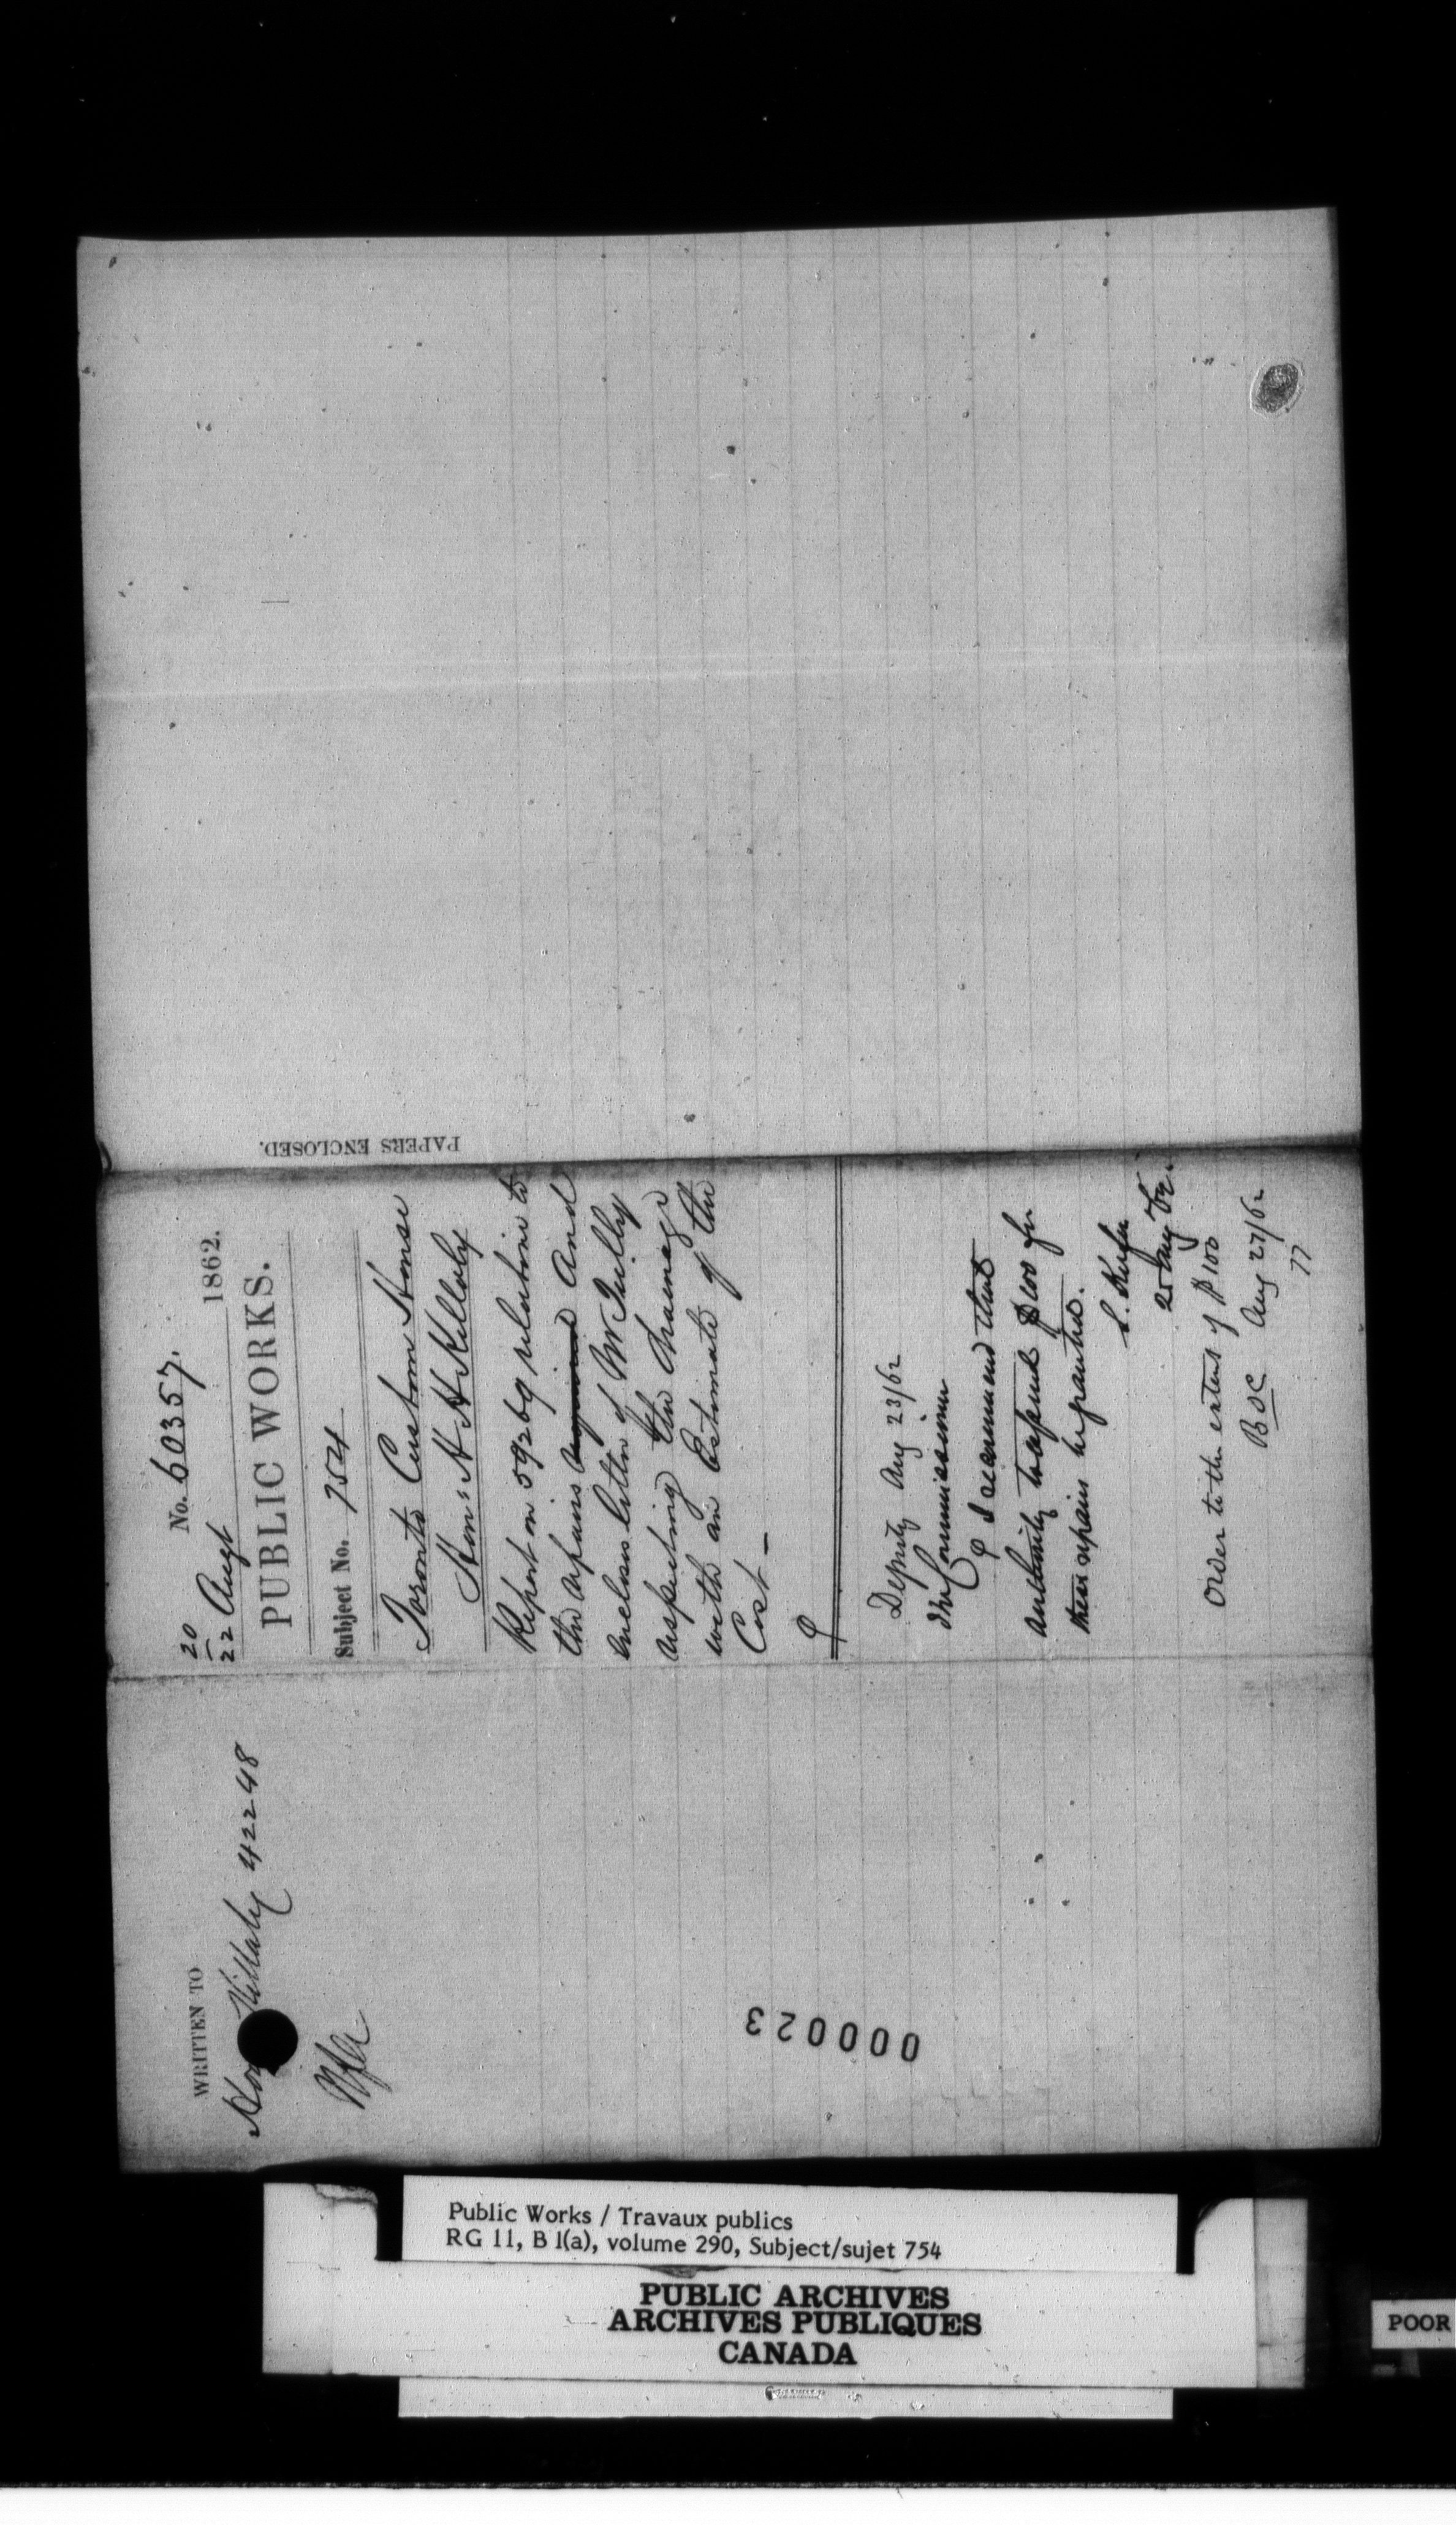 No. 60357.
20
22 Augt 1862.
PUBLIC WORKS.
Subject No. 754
Toronto Custom House
Hon: H H Killaly
Report on 59269 relative to
the repairs required and
encloses letter of Mr Tully
respecting the drainage
with an Estimate of the
Cost –
Deputy Aug 23/62
The Commissioner
I recommend that
authority to expend $100 for
these repairs be granted.
S. Keefer
25 Aug 62.
Order to the extent of $100
BOC Aug 27/62
77
PAPERS ENCLOSED.
WRITTEN TO
Hon Killaly 42248
000023
Public Works / Travaux publics
RG 11, B 1(a), volume 290, Subject/sujet 754
PUBLIC ARCHIVES
ARCHIVES PUBLIQUES
CANADA
POOR